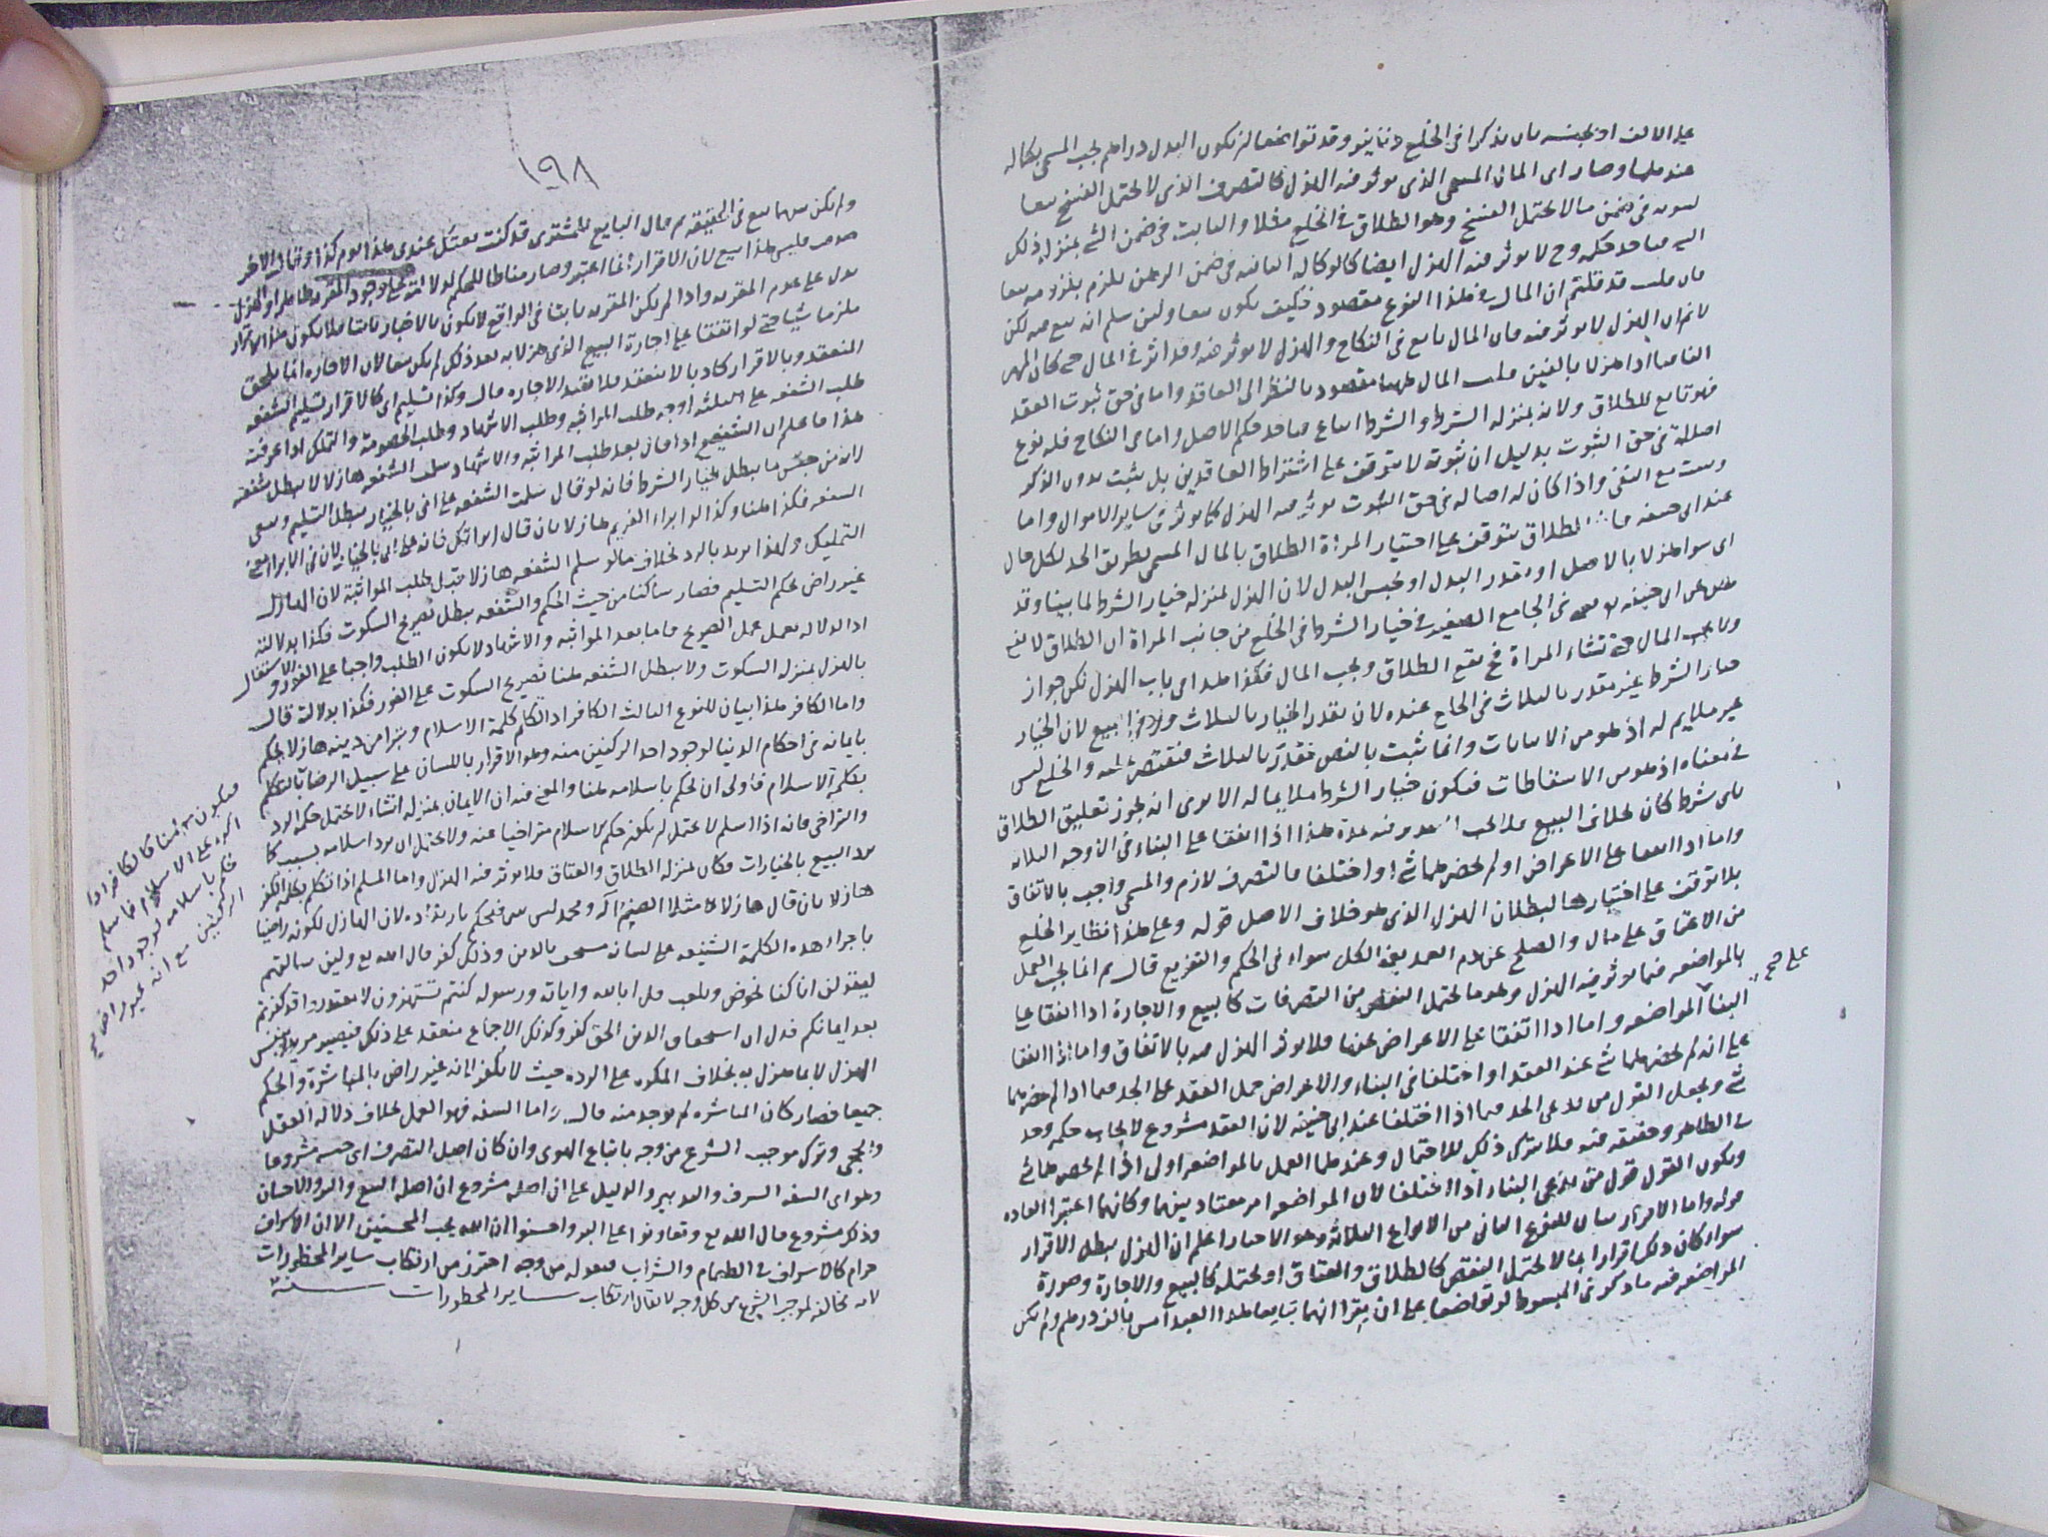 على الالف او بجنسه بان يذكرا في الخلع دنانير وقد تواضعا ان يكون البدل دراهم يجب المسمى بكماله
عندهما وصار اى المال المسمى الذى يوثر فيه الهزل كالتصرف الذى لا يحتمل الفسخ تبعا
لثبوته في ضمن ما لا يحتمل الفسخ وهو الطلاق في الخلع مثلا والثابت في ضمن الشى بمنزلة ذلك
الشى فياخذ حكمه وح لا يوثر فيه الهزل ايضا كالوكالة الثابتة في ضمن الرهن يلزم بلزومه تبعا
فان قلت قد قلتم ان المال في هذا النوع مقصود فكيف يكون تبعا ولئن سلم انه تبع فيه لكن
لا نم ان الهزل لا يوثر فيه فان المال تابع في النكاح والهزل لا يوثر فيه وقد اثر في المال حتى كان المهر
الفا فيما اذا هزلا بالفين قلت المال ههنا مقصود بالنظر الى العاقد واما في حق ثبوت العقد
فهو تابع للطلاق ولانه بمنزلة الشرط والشرط اتباع فياخذ حكم الاصل واما في النكاح فله نوع
اصالة في حق الثبوت بدليل ان ثبوته لا يتوقف على اشتراط العاقدين بل يثبت بدون الذكر
ويثبت مع النفى واذا كان له اصالة في حق الثبوت يوثر فيه الهزل كما يوثر في ساير الاموال واما
عند ابى حنيفة فان الطلاق يتوقف على اختيار المرأة الطلاق بالمال المسمى بطريق الجد لكل حال
اى سوا هزلا بالاصل او بقدر البدل او بجنس البدل لان الهزل بمنزلة خيار الشرط لما بينا وقد
نص عن ابى حنيفة في الجامع الصغير في خيار الشرط في الخلع من جانب المراة ان الطلاق لا يقع
ولا يجب المال حتى تشاء المراة فح يقع الطلاق ويجب المال فكذا هذا اى باب الهزل لكن جواز
خيار الشرط غير مقدر بالثلاث في الخلع عنده لان تقدير الخيار بالثلاث ورد في البيع لان الخيار
غير ملايم له اذ هو من الاثباتات وانما ثبت بالنص مقدر بالثلاث فيقتصر عليه والخلع ليس
في معناه اذ هو من الاسقاطات فيكون خيار الشرط ملايما له الا يرى انه يجوز تعليق الطلاق
باى شرط كان بخلاف البيع فلا يجب التقدير فيه بمدة هذا اذا اتفقا على البناء في الاوجه الثلاثة
واما اذا اتفقا على الاعراض او لم يحضرهما شى او اختلفا فالتصرف لازم والمسمى واجب بالاتفاق
بلا توقف على اختيارها لبطلان الهزل الذى هو خلاف الاصل قوله وعلى هذا نظاير الخلع
من الاعتاق على مال والصلح عن دم العمد يعنى الكل سواء في الحكم والتفريع قال ثم انما يجب العمل
بالمواضعه فيما يوثر فيه الهزل وهو ما يحتمل النقض من التصرفات كالبيع والاجارة اذا اتفقا على
على صح
البناء المواضعه واما اذا اتفقا على الاعراض عنها فلا يوثر الهزل فيه بالاتفاق واما اذا اتفقا
على انه لم يحضرهما شى عند العقد او اختلفا في البناء والاعراض حمل العقد على الجد فيما اذا لم يحضرهما
شى ويجعل القول من يدعى الجد فيما اذا اختلفا عند ابى حنيفة لان العقد مشروع لايجاب حكمه وجد
في الظاهر وحقيقته فيه فلا يترك ذلك للاحتمال وعندهما العمل بالمواضعه اولى اذا لم يحضرهما شى
ويكون القول قول من يدعى البناء اذا اختلفا لان المواضعه امر معتاد بينهما وكانهما اعتبرا العاده
قوله واما الاقرار بيان للنوع الثانى من الانواع الثلاثة وهو الاخبار اعلم ان الهزل يبطل الاقرار
سواء كان ذلك اقرارا بما لا يحتمل النقض كالطلاق والعتاق او يحتمله كالبيع والاجارة وصورة
المواضعه فيه ما ذكر في المبسوط لو تواضعا على ان يقرا انهما تبايعا هذا العبد امس بالف درهم ولم يكن
١٩٨
ولم يكن بينهما بيع في الحقيقة ثم قال البايع للمشترى قد كنت بعتك عبدى هذا يوم كذا وقال الاخر
صدقت فليس هذا ببيع لان الاقرار انما اعتبر وصار مناطا للحكم لدلالته على وجود المقر به ظاهرا والهزل
يدل على عدم المقر به واذا لم يكن المقر به ثابتا في الواقع لا يكون بالاخبار ثابتا فلا يكون هذا الاقرار
ملزما شيا حتى لو اتفقا على اجازة البيع الذى هزلا به بعد ذلك لم يكن بيعا لان الاجازة انما تلحق
المنعقد وبالاقرار كاذبا لا ينعقد فلا تفيد الاجازه قال وكذا تسليم اى كالاقرار تسليم الشفعه
طلب الشفعه على ثلثة اوجه طلب المواثبه وطلب الاشهاد وطلب الخصومة والتملك اذا عرفت
هذا فاعلم ان الشفيع اذا قال بعد طلب المواثبه والاشهاد سلمت الشفعه هازلا لا يبطل شفعته
لانه من جنس ما يبطل بخيار الشرط فانه لو قال سلمت الشفعه على انى بالخيار يبطل التسليم وتبقى
الشفعه فكذا هنا وكذا لو ابراء الغريم هازلا بان قال ابراتك فانه على انى بالخيار لان في الابراء معنى
التمليك ولهذا يرتد بالرد بخلاف ما لو سلم الشفعه هازلا قبل طلب المواثبة لان الهازل
غير راض بحكم التسليم فصار ساكتا من حيث الحكم والشفعه يبطل بصريح السكوت فكذا بدلالته
اذ الدلاله تعمل عمل الصريح فاما بعد المواثبه والاشهاد لا يكون الطلب واجبا على الفور والاشتغال
بالهزل بمنزله السكوت ولا يبطل الشفعه هنا بصريح السكوت على الفور فكذا بدلالته قال
واما الكافر هذا بيان للنوع الثالث الكافر اذا تكلم كلمة الاسلام وتبرا من دينه هازلا يحكم
بايمانه في احكام الدنيا لوجود احد الركنين منه وهو الاقرار باللسان على سبيل الرضا بالتكلم
بكلمة الاسلام فاولى ان يحكم باسلامه هنا والمعنى فيه ان الايمان بمنزلة انشاء لا يحتمل حكمه الرد
والتراخى فانه اذا اسلم لا يحتمل ان يكون حكم الاسلام متراخيا عنه ولا يحتمل ان يرد اسلامه بسبب كما
يرد البيع بالخيارات فكان بمنزلة الطلاق والعتاق فلا يوثر فيه الهزل واما المسلم اذا تكلم بكلمة الكفر
هازلا بان قال هازلا مثلا الصنم اله ومحمد ليس بنبى فيحكم بارتداده لان الهازل لكونه راضيا
باجراء هذه الكلمة الشنيعه على لسانه مستخف بالدين وذلك كفر قال الله تع ولئن سالتهم
ليقولن انما كنا نخوض ونلعب قل ابالله واياته ورسوله كنتم تستهزون لا تعتذروا قد كفرتم
بعد ايمانكم فدل ان استخفاف الدين الحق كفر وكذلك الاجماع منعقد على ذلك فيصير مرتدا بنفس
الهزل لا بما هزل به بخلاف المكره على الردة حيث لا يكفر لانه غير راض بالمباشرة والحكم
جميعا فصار كان المباشرة لم توجد منه قال واما السفه فهو العمل بخلاف دلالة العقل
والحجى وترك موجب الشرع من وجه باتباع الهوى وان كان اصل التصرف اى جنسه مشروعا
وهو اى السفه السرف والتبذير والدليل على ان اصله مشروع ان اصله البيع والبر والاحسان
وذلك مشروع قال الله تع وتعاونوا على البر واحسنوا ان الله يحب المحسنين الا ان الاسراف
حرام كالاسراف في الطعام والشراب فقوله من وجه احترز من ارتكاب ساير المحظورات
لانه مخالفة لموجب الشرع من كل وجه لا يقال ارتكاب ساير المحظورات
فيكون هنا كالكافر اذا
اكره على الاسلام فاسلم
يحكم باسلامه لوجود احد
الركنين مع انه غير راض